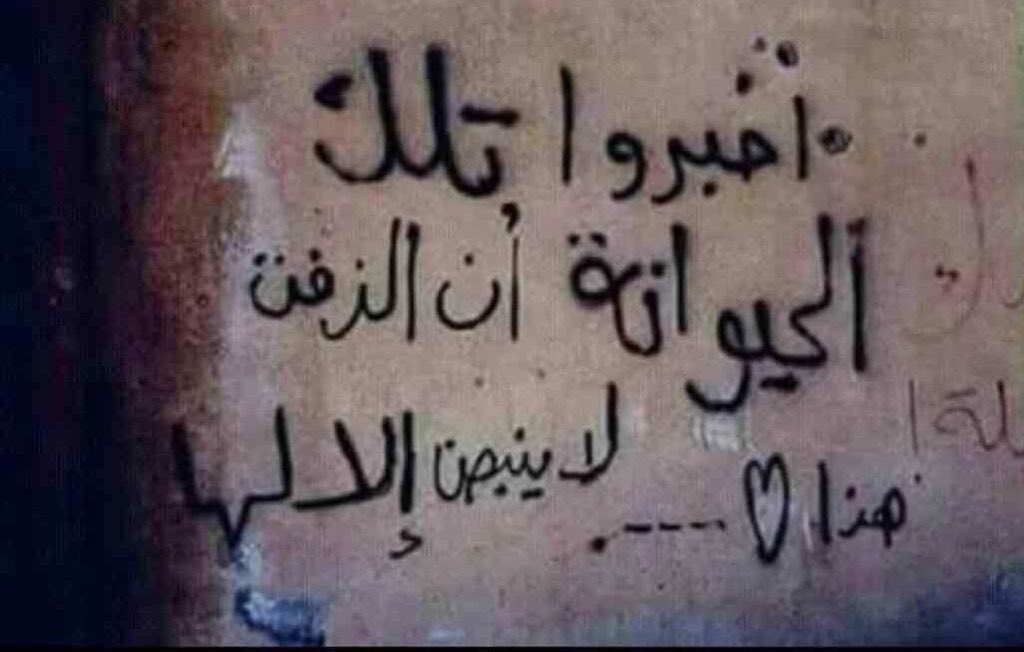 أخبروا تلك
الحيوانة أن الزفت
هذا ♡ ----. لا ينبض إلا لها